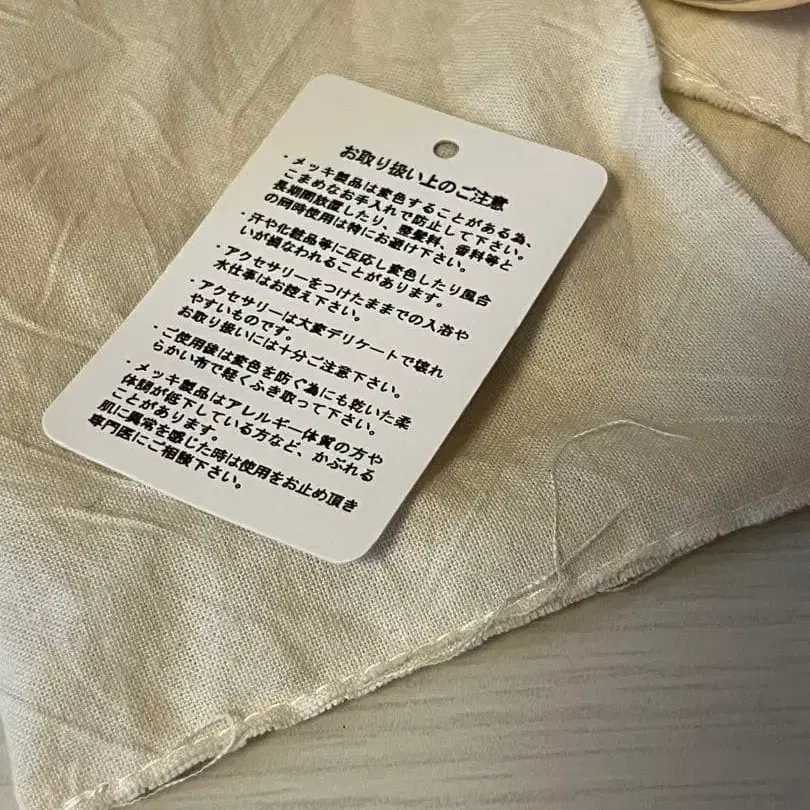 お取り扱い上のご注意
・メッキ製品は変色することがある為、
こまめなお手入れで防止して下さい。
長期間放置したり、整髪料、香料等と
の同時使用は特にお避け下さい。
・汗や化粧品等に反応し変色したり風合
いが損なわれることがあります。
・アクセサリーをつけたままでの入浴や
水仕事はお控え下さい。
・アクセサリーは大変デリケートで壊れ
やすいものです。
お取り扱いには十分ご注意下さい。
・ご使用後は変色を防ぐ為にも乾いた柔
らかい布で軽くふき取って下さい。
・メッキ製品はアレルギー体質の方や
体調が低下している方など、かぶれる
ことがあります。
肌に異常を感じた時は使用をお止め頂き
専門医にご相談下さい。